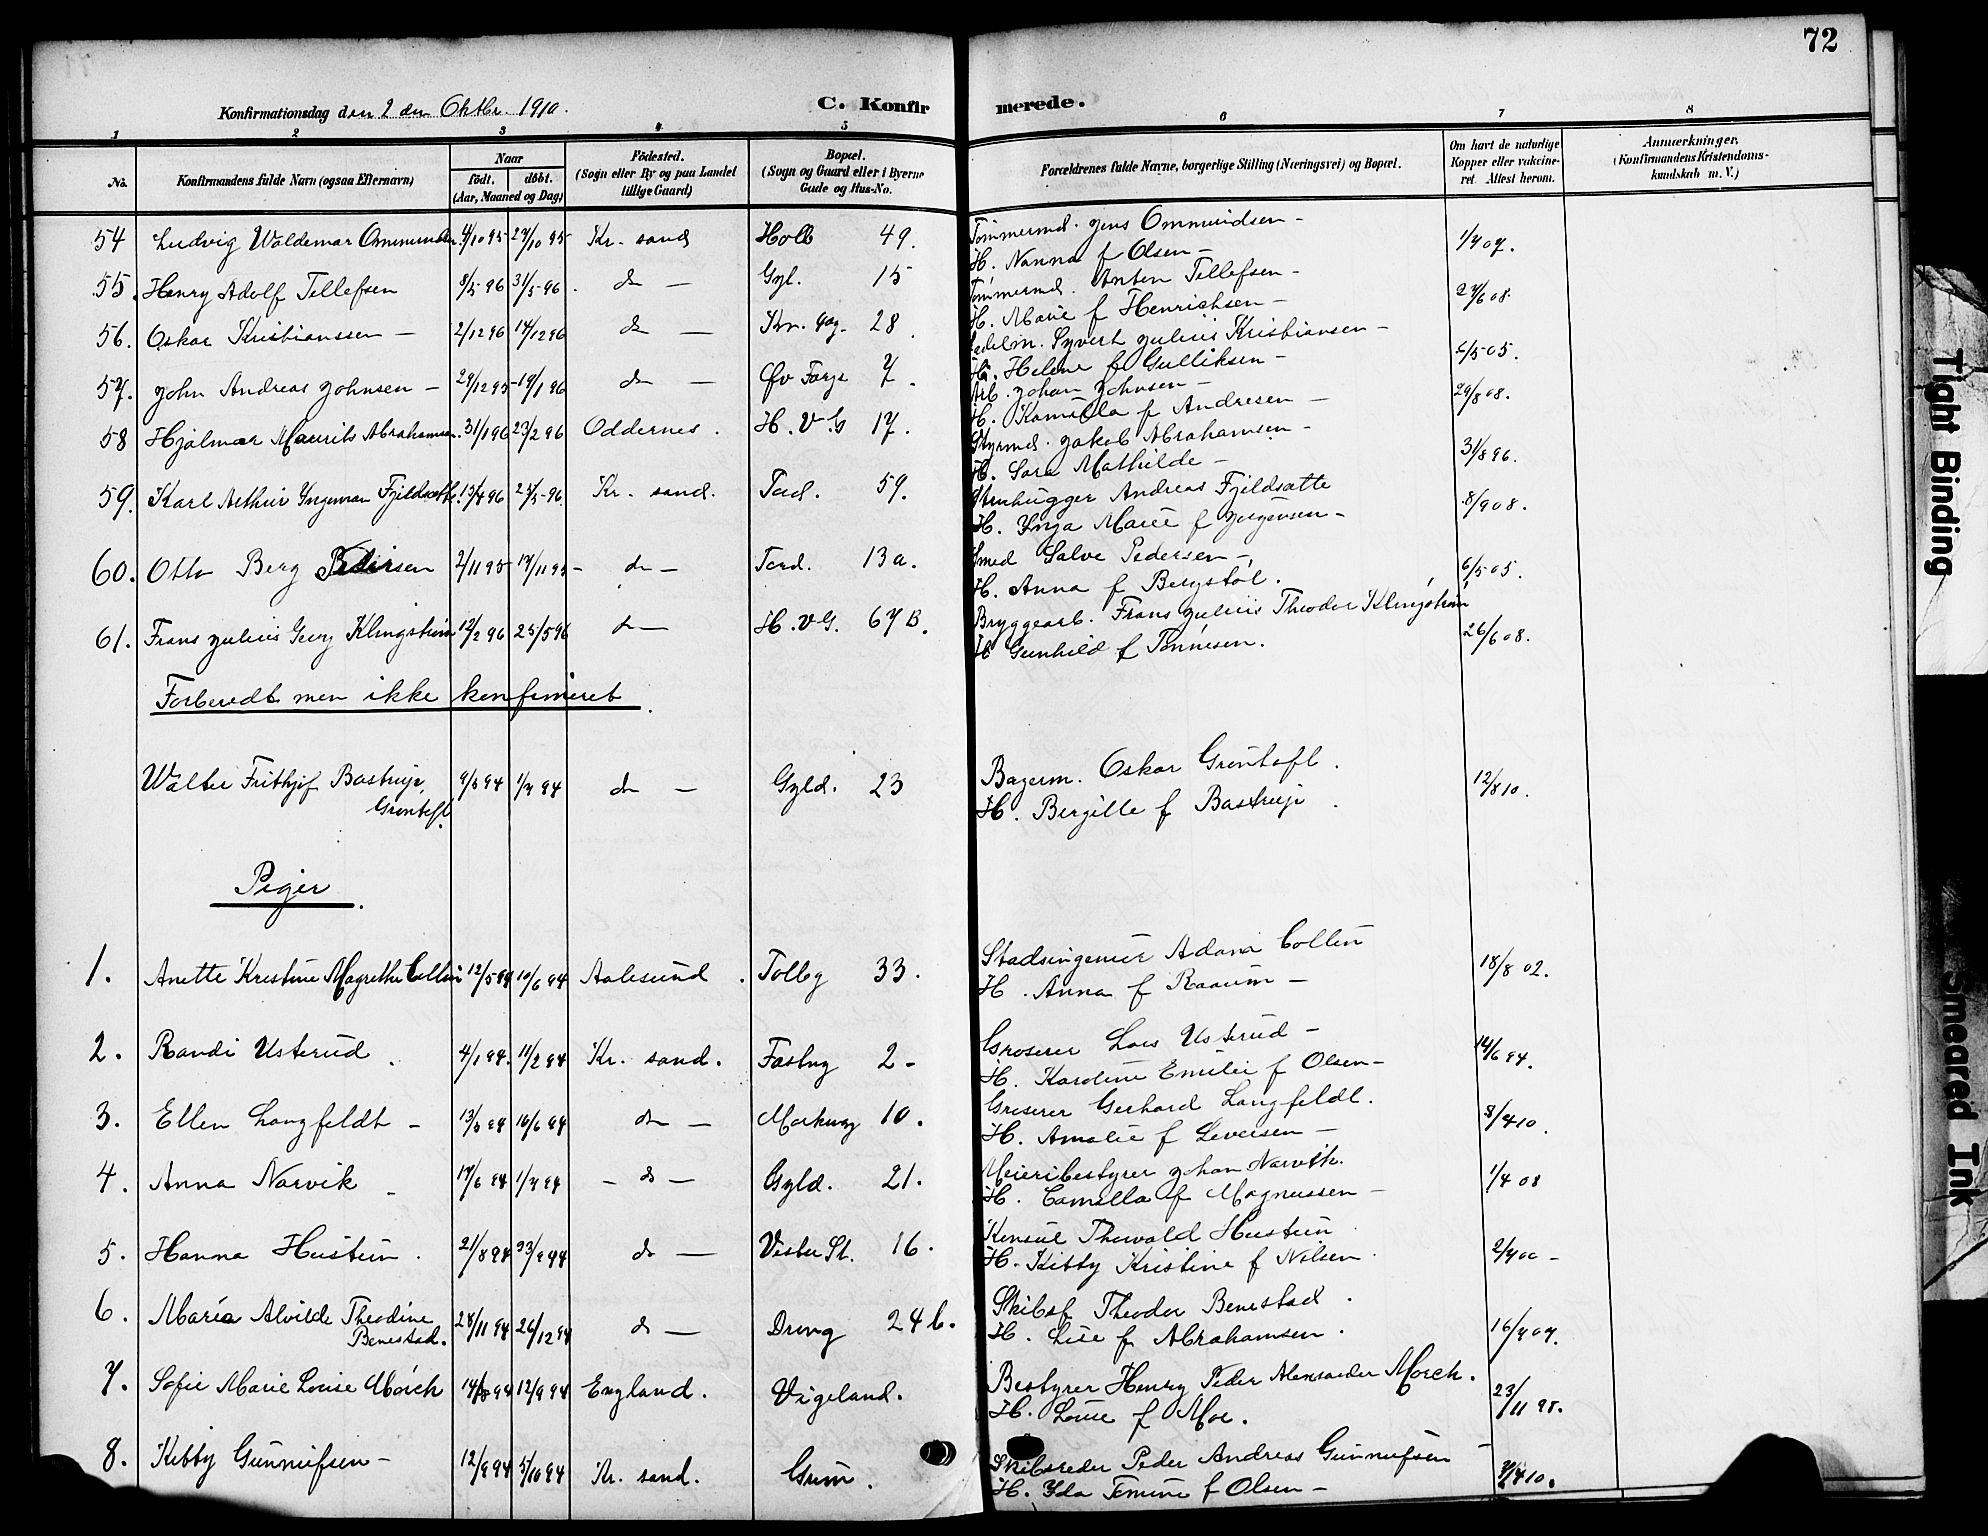 72
Konfirmationsdag den 2 den Oktbr. 1910.
C. Konfirmerede.
1 2 3 4 5 6 7 8
No. Konfirmandens fulde Navn (ogsaa Efternavn) Naar födt. döbt. (Aar, Maaned og Dag) Födested. (Sogn eller By og paa Landet tillige Gaard) Bopæl. (Sogn og Gaard eller i Byerne Gade og Hus-No. Forældrenes fulde Navne, borgerlige Stilling (Næringsvei) og Bopæl. Om havt de naturlige Kopper eller vakcineret. Attest herom. Anmærkninger. (Konfirmandens Kristendomskundskab m. V.)
54 Ludvig Waldemar Ommundsen 4/10 95 27/10 95 Kr. sand Holb 49. Tømmermd. Jens Ommundsen -
H. Nanna f Olsen - 1/7 07.
55. Henry Adolf Tellefsen 8/5 96 31/5 96. do — Gyl. 15 Tømmermd. Anton Tellefsen -
H. Marie f Henrichsen - 27/6 08.
56. Oskar Kristianssen — 2/12 96 14/12 96 do — Kr. 28. Syvert Julius Kristiansen -
H. Helene f Gulliksen - 6/5 05.
57. John Andreas Johnsen — 29/12 95 19/1 96 do — Øv 7. Arb. Johan Johnsen -
H. Kamilla f Andresen — 29/8 08.
58 Hjalmar Maurits Abrahamsen. 31/1 96 23/2 96 Oddernes. H. V. G 17. Styrmd. Jakob Abrahamsen -
H. Sara Mathilde - 31/8 96.
59. Karl Arthur Yngeman Fjeldsætte. 13/4 96 25/5 96. Kr. sand. Tord. 59. Stenhugger Andreas Fjeldsætte
H. Inga Marie f Jørgensen - 8/9 08.
60. Otto Berg Pedersen 2/11 95 17/11 95 - do — Tord. 13a. Smed Salve Pedersen -
H. Anna f Bergstøl. 6/5 05.
61. Frans Julius Georg Klingstrøm 12/2 96 25/5 96 do — H. V G. 67 B. Bryggearb. Frans Julius Theodor Klingstrøm
H Gunhild f Tønnesen. 26/6 08.
Forberedt men ikke konfirmeret.
Walter Frithjof Bastrup, Grøntoft. 9/3 94 1/7 94 do — Gyld. 23 Bagerm. Oskar Grøntoft.
H. Bergitte f Bastrup. 12/8 10.
Piger.
1. Anette Kristine Magrethe Collin 12/5 94 10/6 94 Aalesund. Tolbg 33. Stadsingeniør Adam Collin
H. Anna f Raaum — 18/8 02.
2. Randi Usterud. 4/1 94. 11/2 94 Kr. sand. Fæstng 2 - Groserer Lars Usterud -
H. Karoline Emilie f Olsen - 14/6 94.
3. Ellen Langfeldt - 13/3 94 16/6 94 do — Markensg 10. Groserer Gerhard Langfeldt.
H. Amalie f Leversen - 8/4 10.
4. Anna Narvik - 17/6 94 1/7 94 - do — Gyld. 21. Meieribestyrer Johan Narvik.
H. Camilla f Magnussen - 1/4 08
5. Hanna Heistein. 21/8 94 23/9 94 do — Vester St. 16. Konsul Thorvald Heistein
H. Kitty Kristine f Nilsen. 2/7 00 -
6. Maria Alvilde Theodine Benestad. 28/11 94 26/12 94 do — Drong 24 b. Skibsf Theodor Benestad.
H. Lise f Abrahamsen. 16/7 07.
7. Sofie Marie Louise Mørch 14/8 94 12/9 94 England. Vigeland. Bestyrer Henry Peder Alexander Mørch.
H. Louise f Moe. 23/11 98.
8. Kitty Gunnufsen — 12/9 94 5/10 94 Kr. sand. Grim. Skibsreder Peder Andreas Gunnufsen -
H. Ida Tomine f Olsen - 7/4 10.
Tight Binding
Smeared Ink